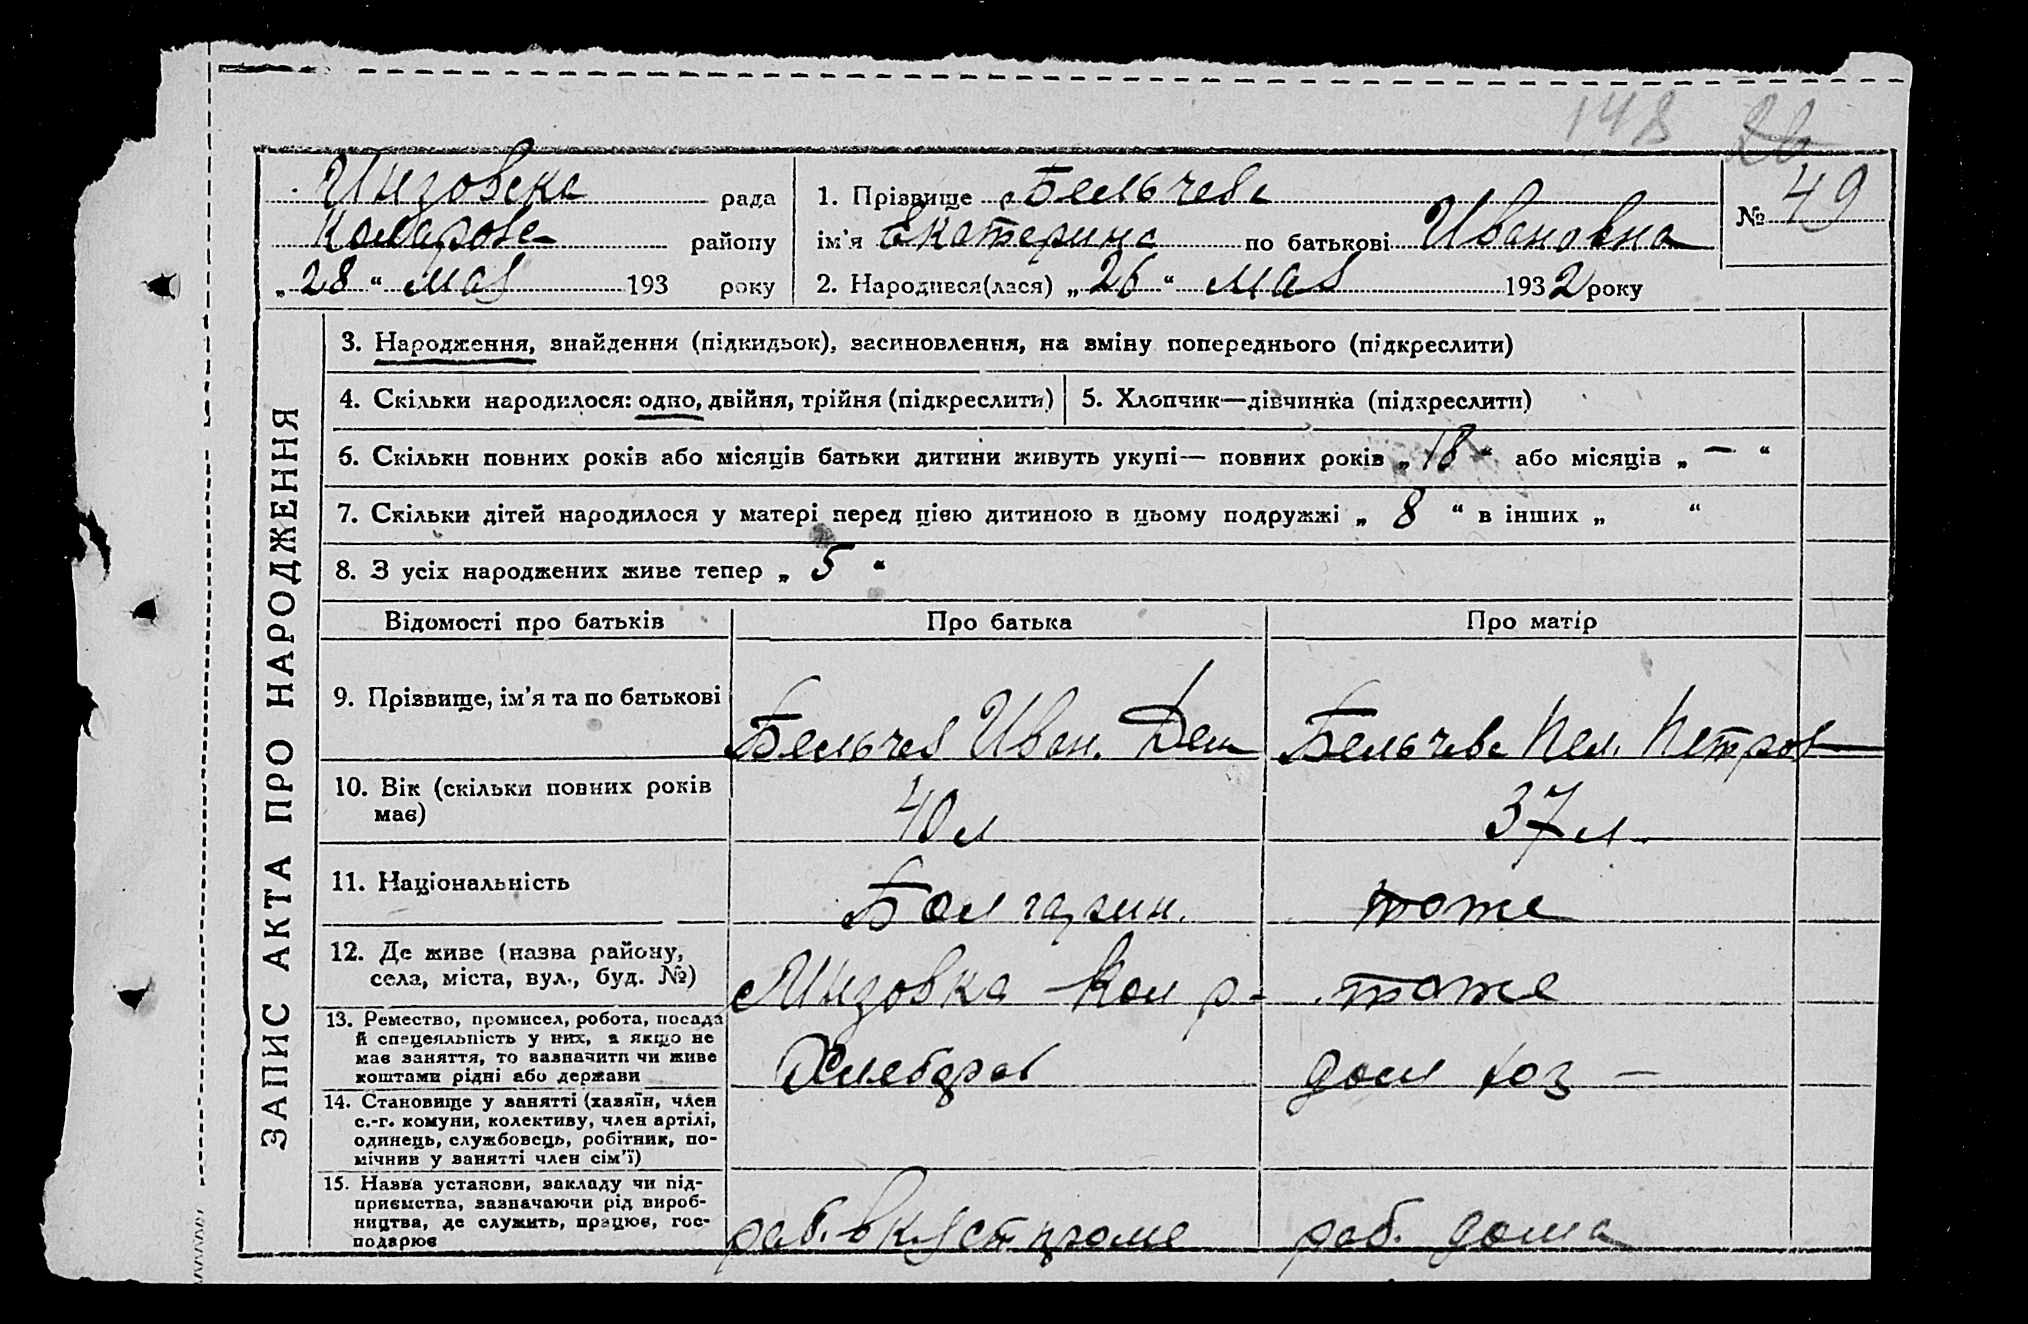 148 26
Инзовска рада
Коларовс району
„ 28 “ мая 193 року
1. Прізвище Бельчева
ім’я Екатерина по батькові Ивановна
2. Народився(лася) „ 26 “ мая 1932 року
№ 49
ЗАПИС АКТА ПРО НАРОДЖЕННЯ
3. Народження, знайдення (підкидьок), засиновлення, на зміну попереднього (підкреслити)
4. Скільки народилося: одно, двійня, трійня (підкреслити)
5. Хлопчик—дівчинка (підкреслити)
6. Скільки повних років або місяців батьки дитини живуть укупі— повних років „ 18 “ або місяців „ — “
7. Скільки дітей народилося у матері перед цією дитиною в цьому подружжі „ 8 “ в інших „ “
8. З усіх народжених живе тепер „ 5 “
Відомості про батьків Про батька Про матір
9. Прізвище, ім’я та по батькові
Бельчев Иван. Дем Бельчева Пел. Петров
10. Вік (скільки повних років
має)
40 л 37 л.
11. Національність
Болгарин. тоже
12. Де живе (назва району,
села, міста, вул., буд. №)
Инзовка Кол р- тоже
13. Ремество, промисел, робота, посада
й спецеяльність у них, а якщо не
має заняття, то зазначити чи живе
коштами рідні або держави
Хлебороб дом хоз —
14. Становище у занятті (хазяїн, член
с.-г. комуни, колективу, член артілі,
одинець, службовець, робітник, по-
мічник у занятті член сім’ї)
15. Назва установи, закладу чи під-
приємства, зазначаючи рід вироб-
ництва, де служить, працює, гос-
подарює
раб. в кустпроме раб. дома